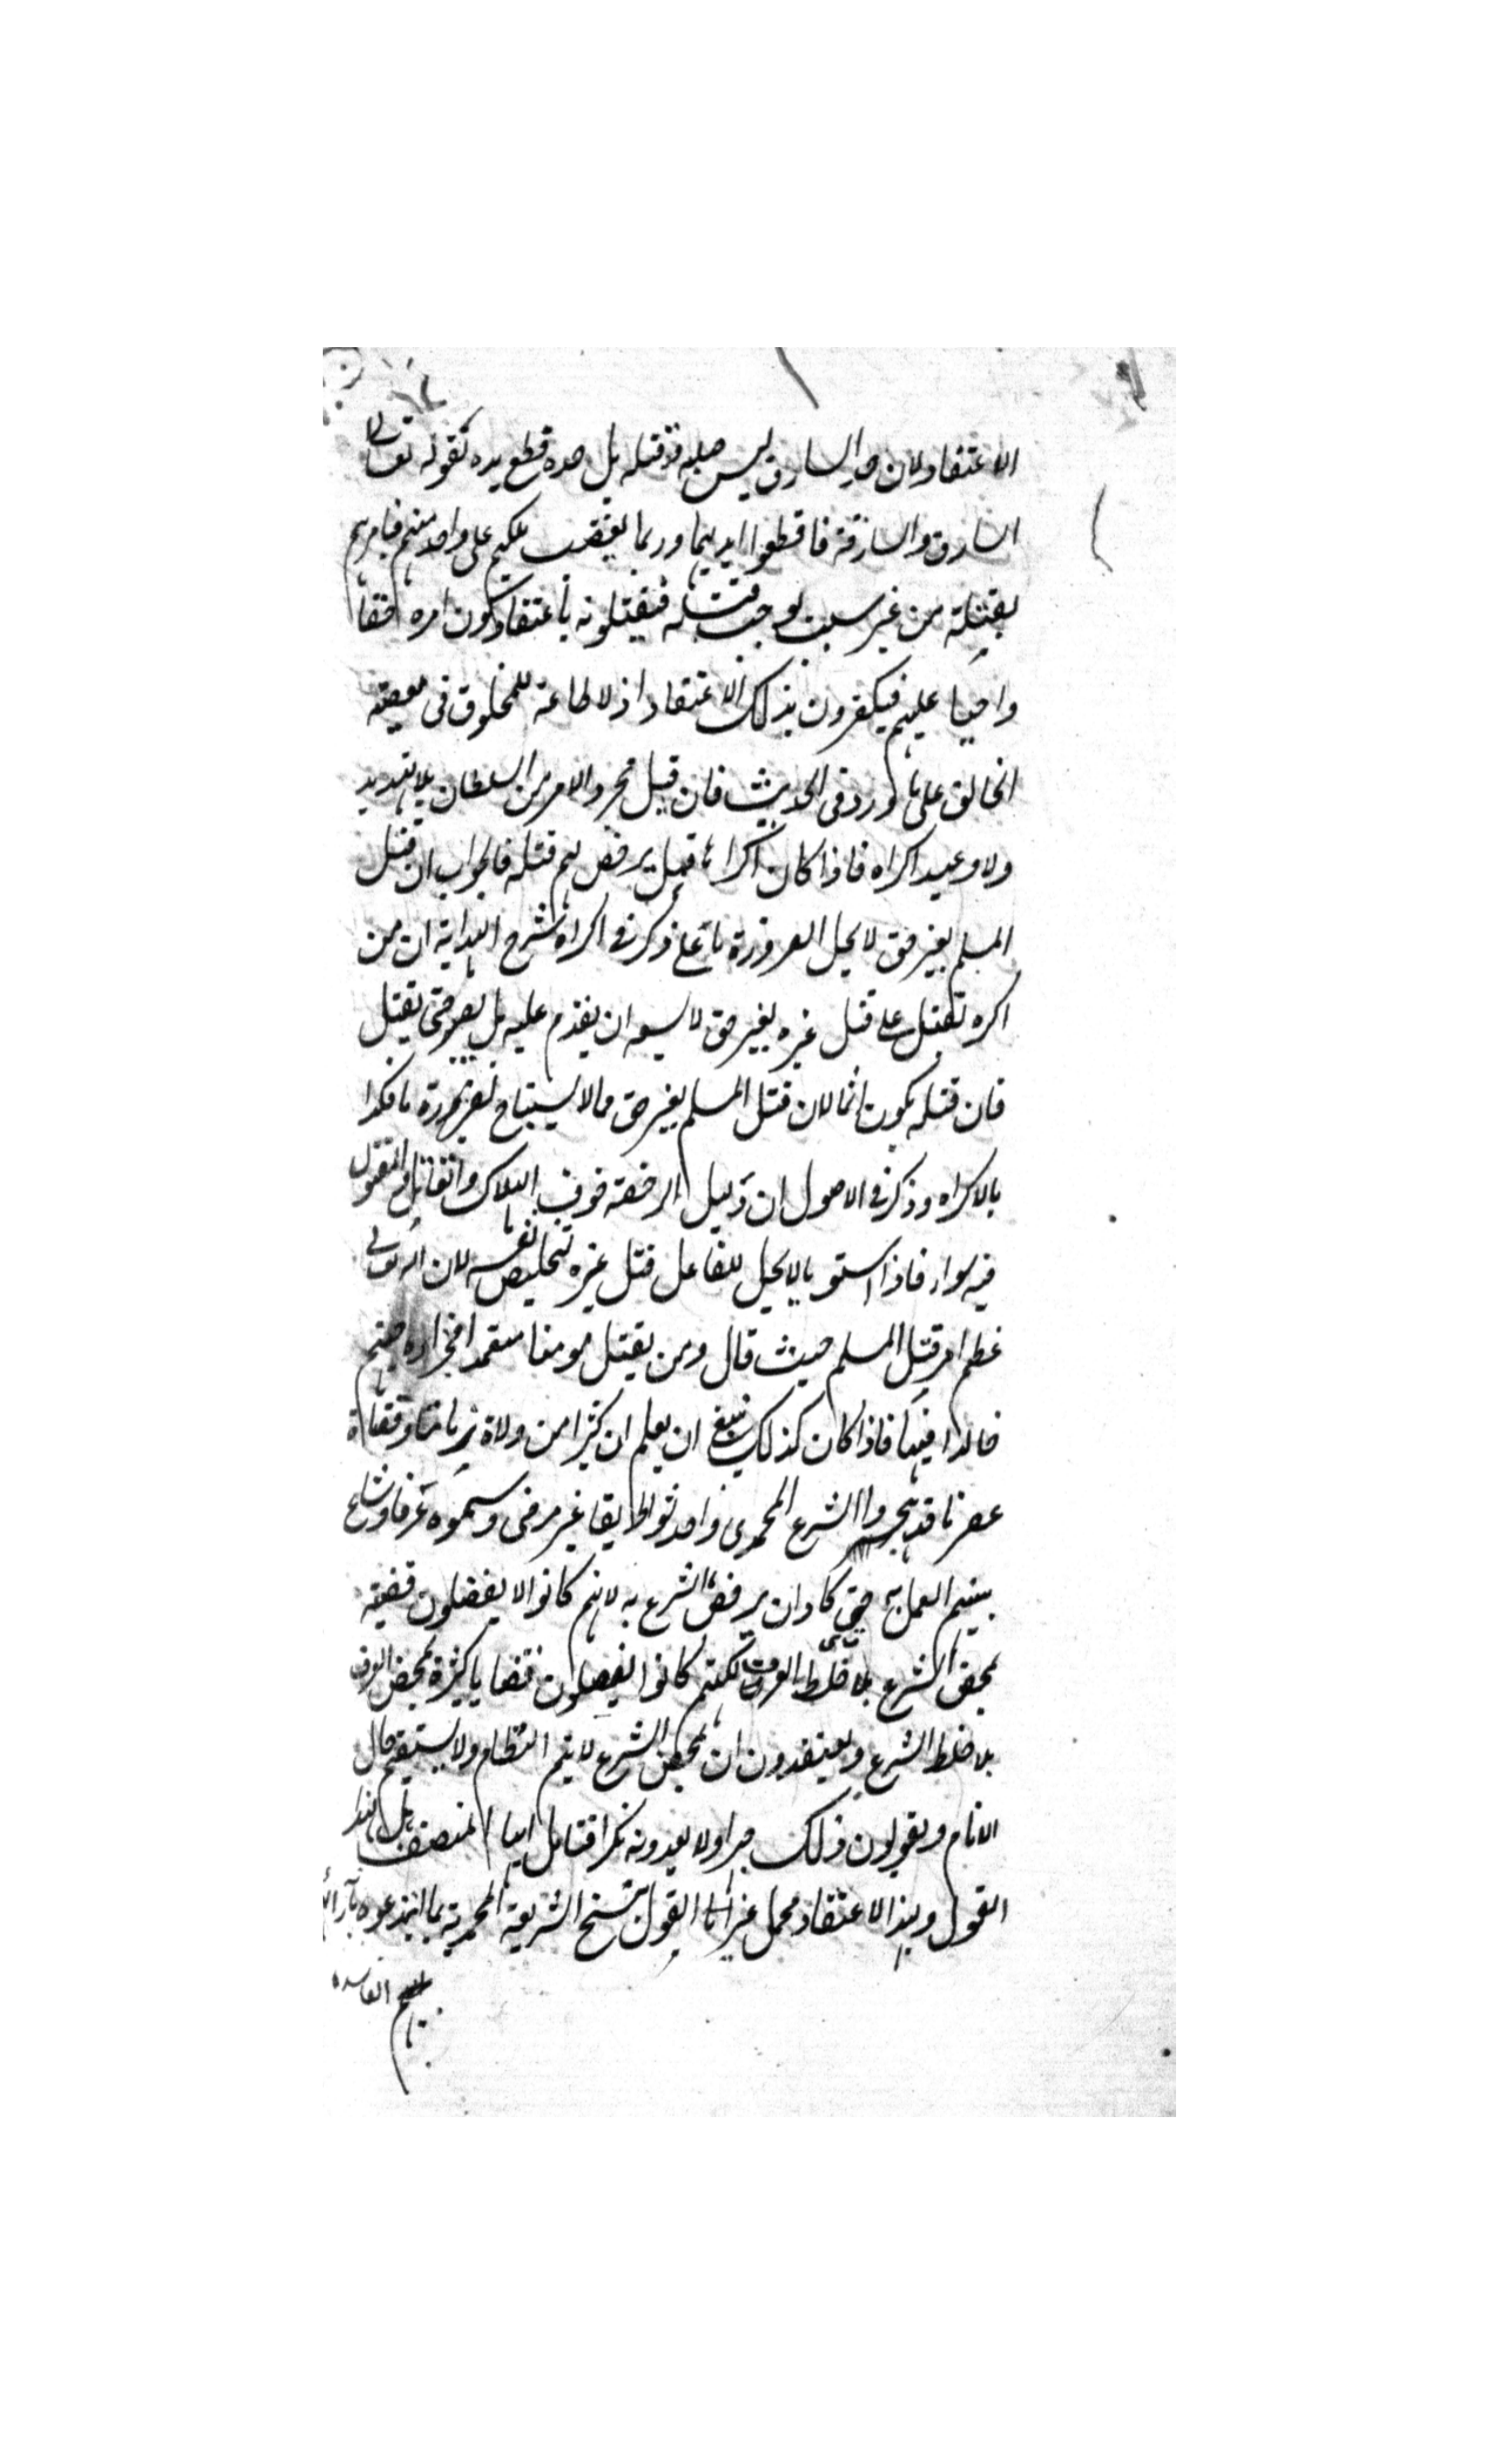 الاعتقاد لان حد السارق ليس صلبه وقتله بل حده قطع يده لقوله تعالى
السارق والسارقة فاقطعوا ايديهما وربما يغضب ملكهم على واحد منهم فيامرهم
بقتله من غير سبب يوجب قتله فيقتلونه باعتقاد كون امره حقا
واجبا عليهم فيكفرون بذلك الاعتقاد اذ لا طاعة للمخلوق في معصية
الخالق على ما ورد في الحديث فان قيل مجرد الامر من السلطان بلا تهديد
ولا وعيد اكراه فاذا كان اكراها فهل يرخص لهم قتله فالجواب ان قتل
المسلم بغير حق لا يحل لضرورة ما على ذكر في اكراه شرح الهداية ان من
اكره بقتل على قتل غيره بغير حق لا يسعه ان يقدم عليه بل يصبر حتى يقتل
فان قتله يكون اثما لان قتل المسلم بغير حق مما لا يستباح لضرورة ما فكذا
بالاكراه وذكر في الاصول ان دليل الرخصة خوف الهلاك والقاتل والمقتول
فيه سواء فاذا استويا لا يحل للفاعل قتل غيره لتخليص نفسه لان الله تعالى
عظم امر قتل المسلم حيث قال ومن يقتل مومنا متعمدا فجزاؤه جهنم
خالدا فيها فاذا كان كذلك ينبغي ان يعلم ان كثيرا من ولاة زماننا وقضاة
عصرنا قد هجروا الشرع المحمدي واحدثوا طريقا غير مرضى وسموه عرفا وشاع
بينهم العمل به حتى كاد ان يرفض الشرع به لانهم كانوا لا يفصلون قضية
بمحض الشرع بلا خلط العرف لكنهم كانوا يفصلون قضايا كثيرة بمحض العرف
بلا خلط الشرع ويعتقدون ان بمحض الشرع لا يتم النظام ولا يستقيم حال
الانام ويقولون ذلك جهرا ولا يعدونه نكرا فتامل ايها المنصف هل لهذا
القول وبهذا الاعتقاد محمل غير القول بنسخ الشريعة المحمدية بما ابتدعوه بآرائهم
الفاسدة